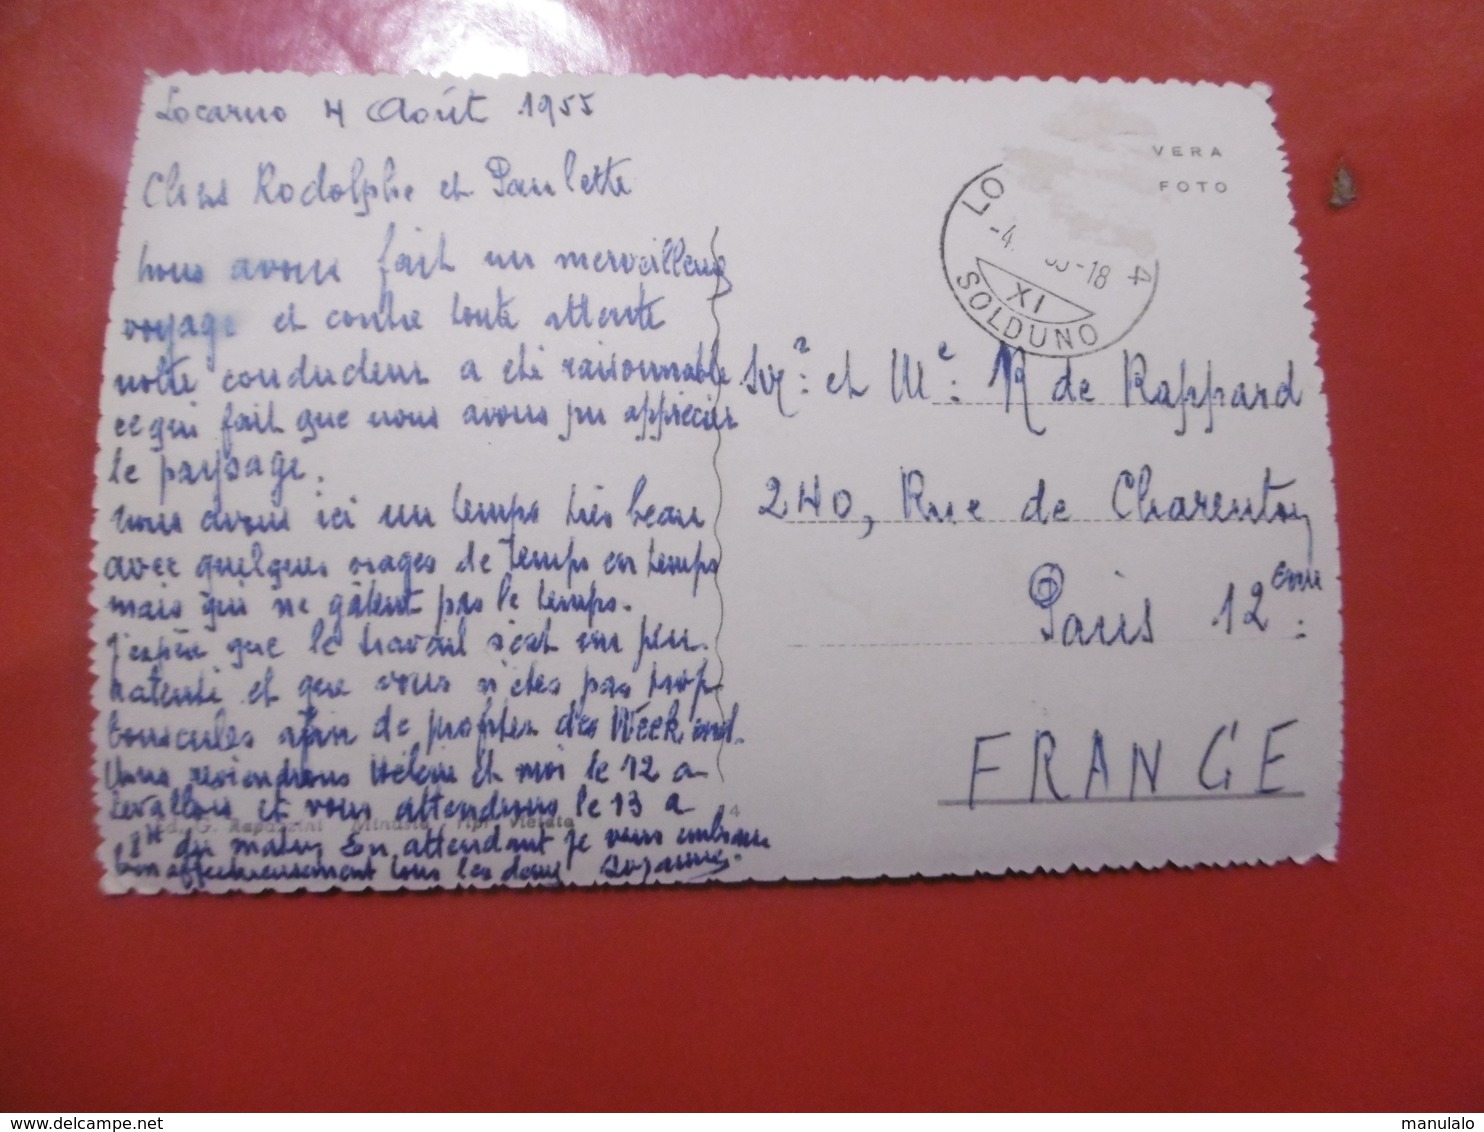 Locarno 4 Août 1955
Chers Rodolphe et Paulette
Nous avons fait un merveilleux
voyage et contre toute attente
notre conducteur a été raisonnable
ce qui fait que nous avons pu apprécier
le paysage.
Nous avons ici un temps très beau
avec quelques orages de temps en temps
mais qui ne gâtent pas le temps.
J'espère que le travail s'est un peu
ralenti et que vous n'êtes pas trop
bousculés afin de profiter des Week end.
Nous reviendrons Hélène et moi le 12 a
Levallois et vous attendrons le 13 a
1H du matin En attendant je vous embrasse
bien affectueusement tous les deux Suzanne
G. Minusio Vietata
4
VERA
FOTO
LO 4
-4. -18
XI
SOLDUNO
Mr et Me R de Rappard
240, Rue de Charenton
Paris 12 eme
FRANCE
delcampe.net
manulalo